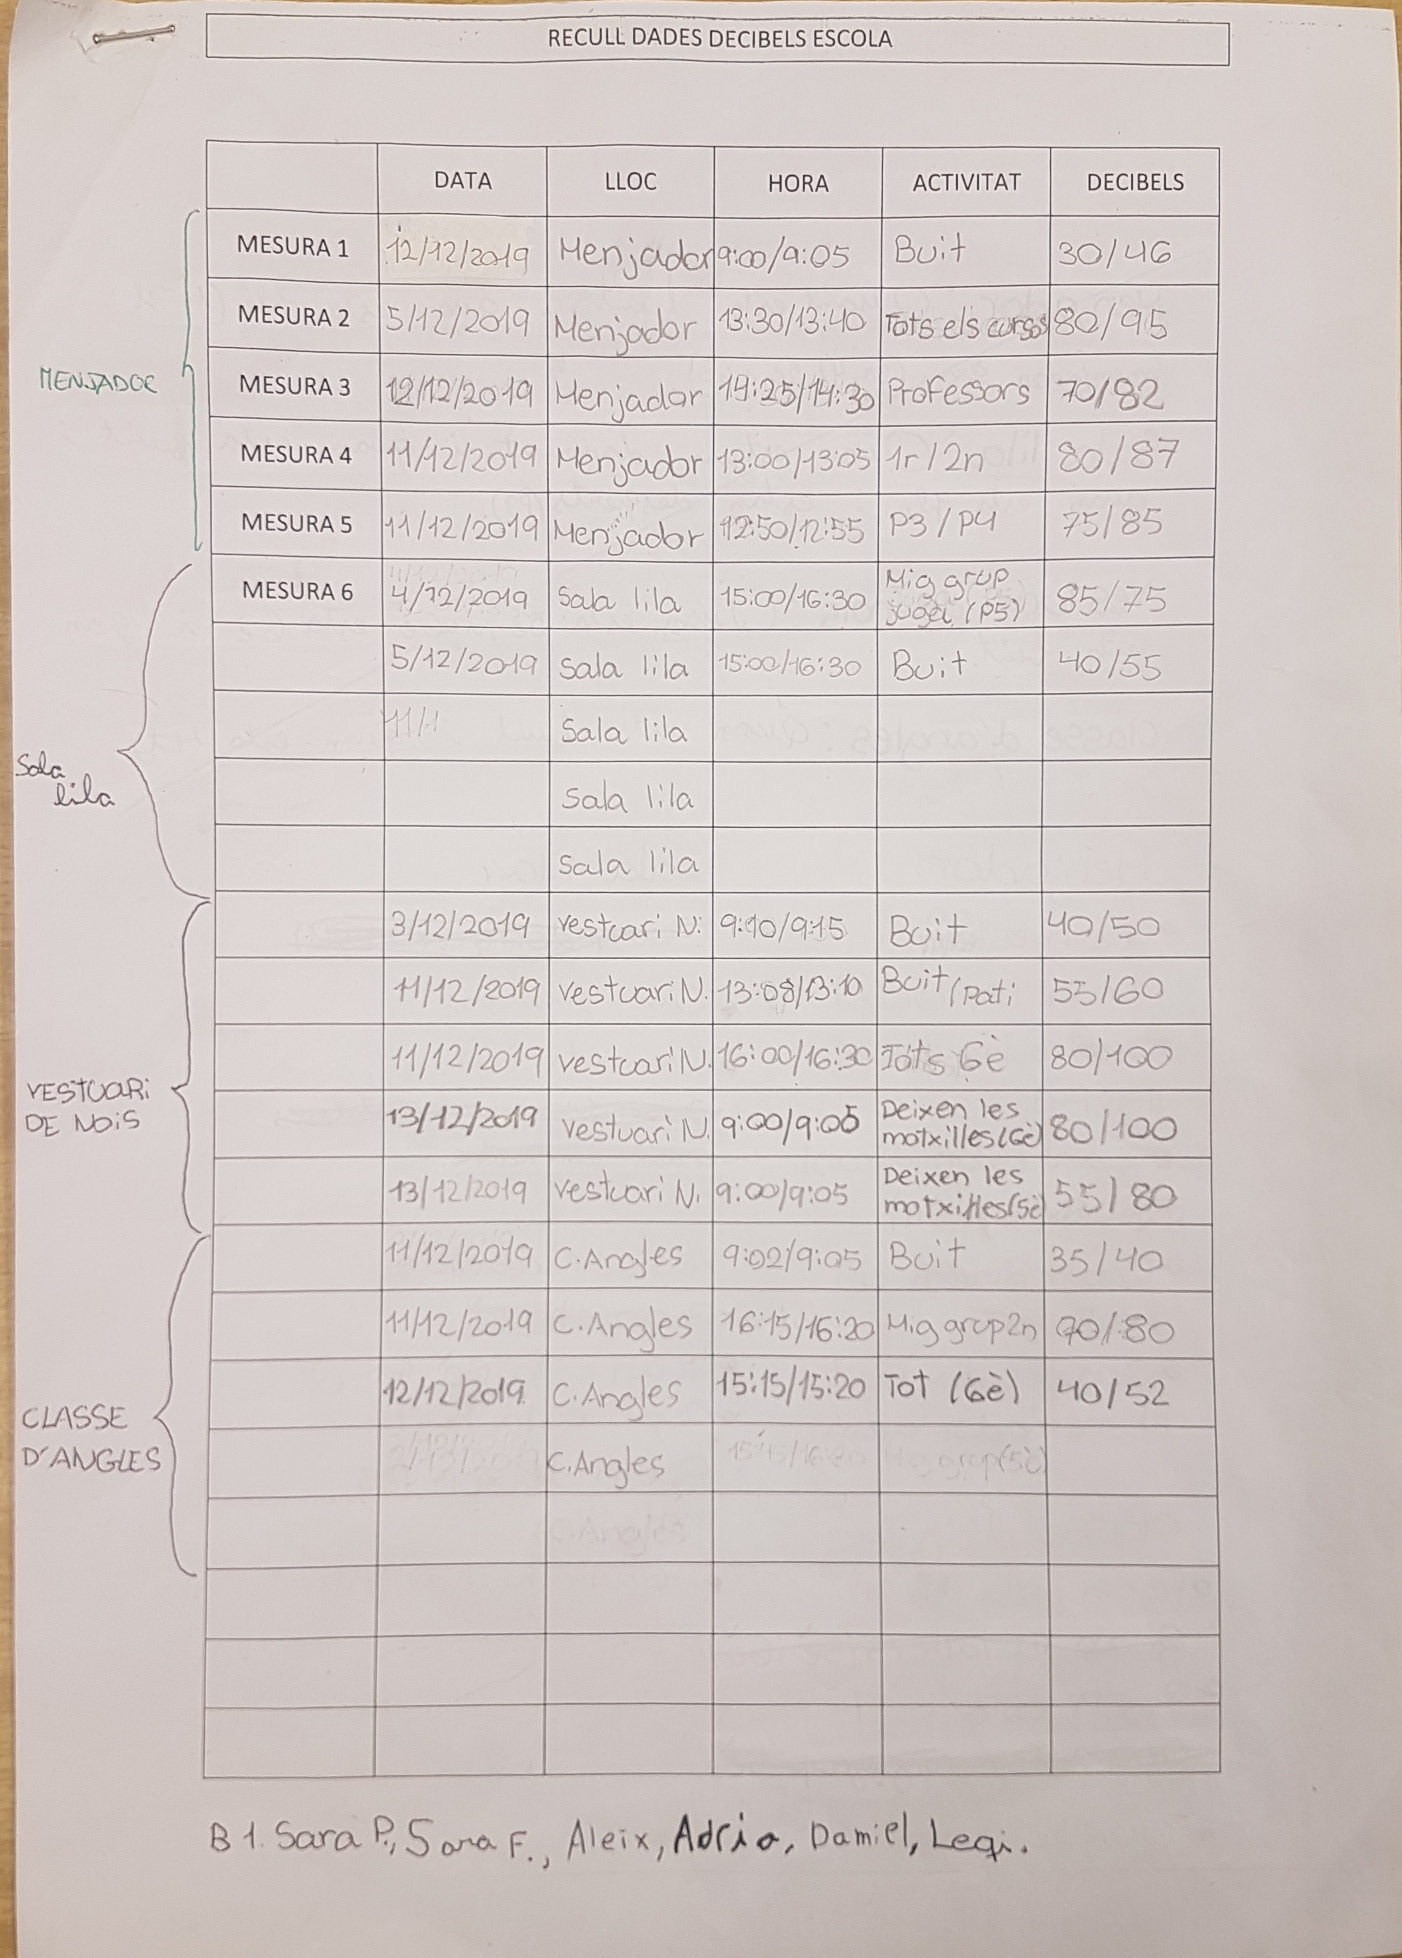 RECULL DADES DECIBELS ESCOLA
DATA LLOC HORA ACTIVITAT DECIBELS
MESURA 1 12/12/2019 Menjador 9:00/9:05 Buit 30/46
MESURA 2 5/12/2019 Menjador 13:30/13:40 Tots els cursos 80/95
MENJADOR
MESURA 3 12/12/2019 Menjador 14:25/14:30 Professors 70/82
MESURA 4 11/12/2019 Menjador 13:00/13:05 1r/2n 80/87
MESURA 5 11/12/2019 Menjador 12:50/12:55 P3/P4 75/85
MESURA 6 4/12/2019 Sala lila 15:00/16:30 Mig grup
juga (P5) 85/75
5/12/2019 Sala lila 15:00/16:30 Buit 40/55
11/1 Sala lila
Sala
lila
Sala lila
Sala lila
3/12/2019 vestuari N. 9:10/9:15 Buit 40/50
11/12/2019 vestuari N. 13:08/13:10 Buit/Pati 55/60
11/12/2019 vestuari N. 16:00/16:30 Tots 6è 80/100
VESTUARI
DE NOIS
13/12/2019 vestuari N. 9:00/9:05 Deixen les
motxilles(6è) 80/100
13/12/2019 vestuari N. 9:00/9:05 Deixen les
motxilles(5è) 55/80
11/12/2019 C.Angles 9:02/9:05 Buit 35/40
11/12/2019 C.Angles 16:15/16:20 Mig grup 2n 70/80
12/12/2019 C.Angles 15:15/15:20 Tot (6è) 40/52
CLASSE
D'ANGLES
C.Angles grup(5è)
C.Angles
B 1. Sara P., Sara F., Aleix, Adria, Damiel,